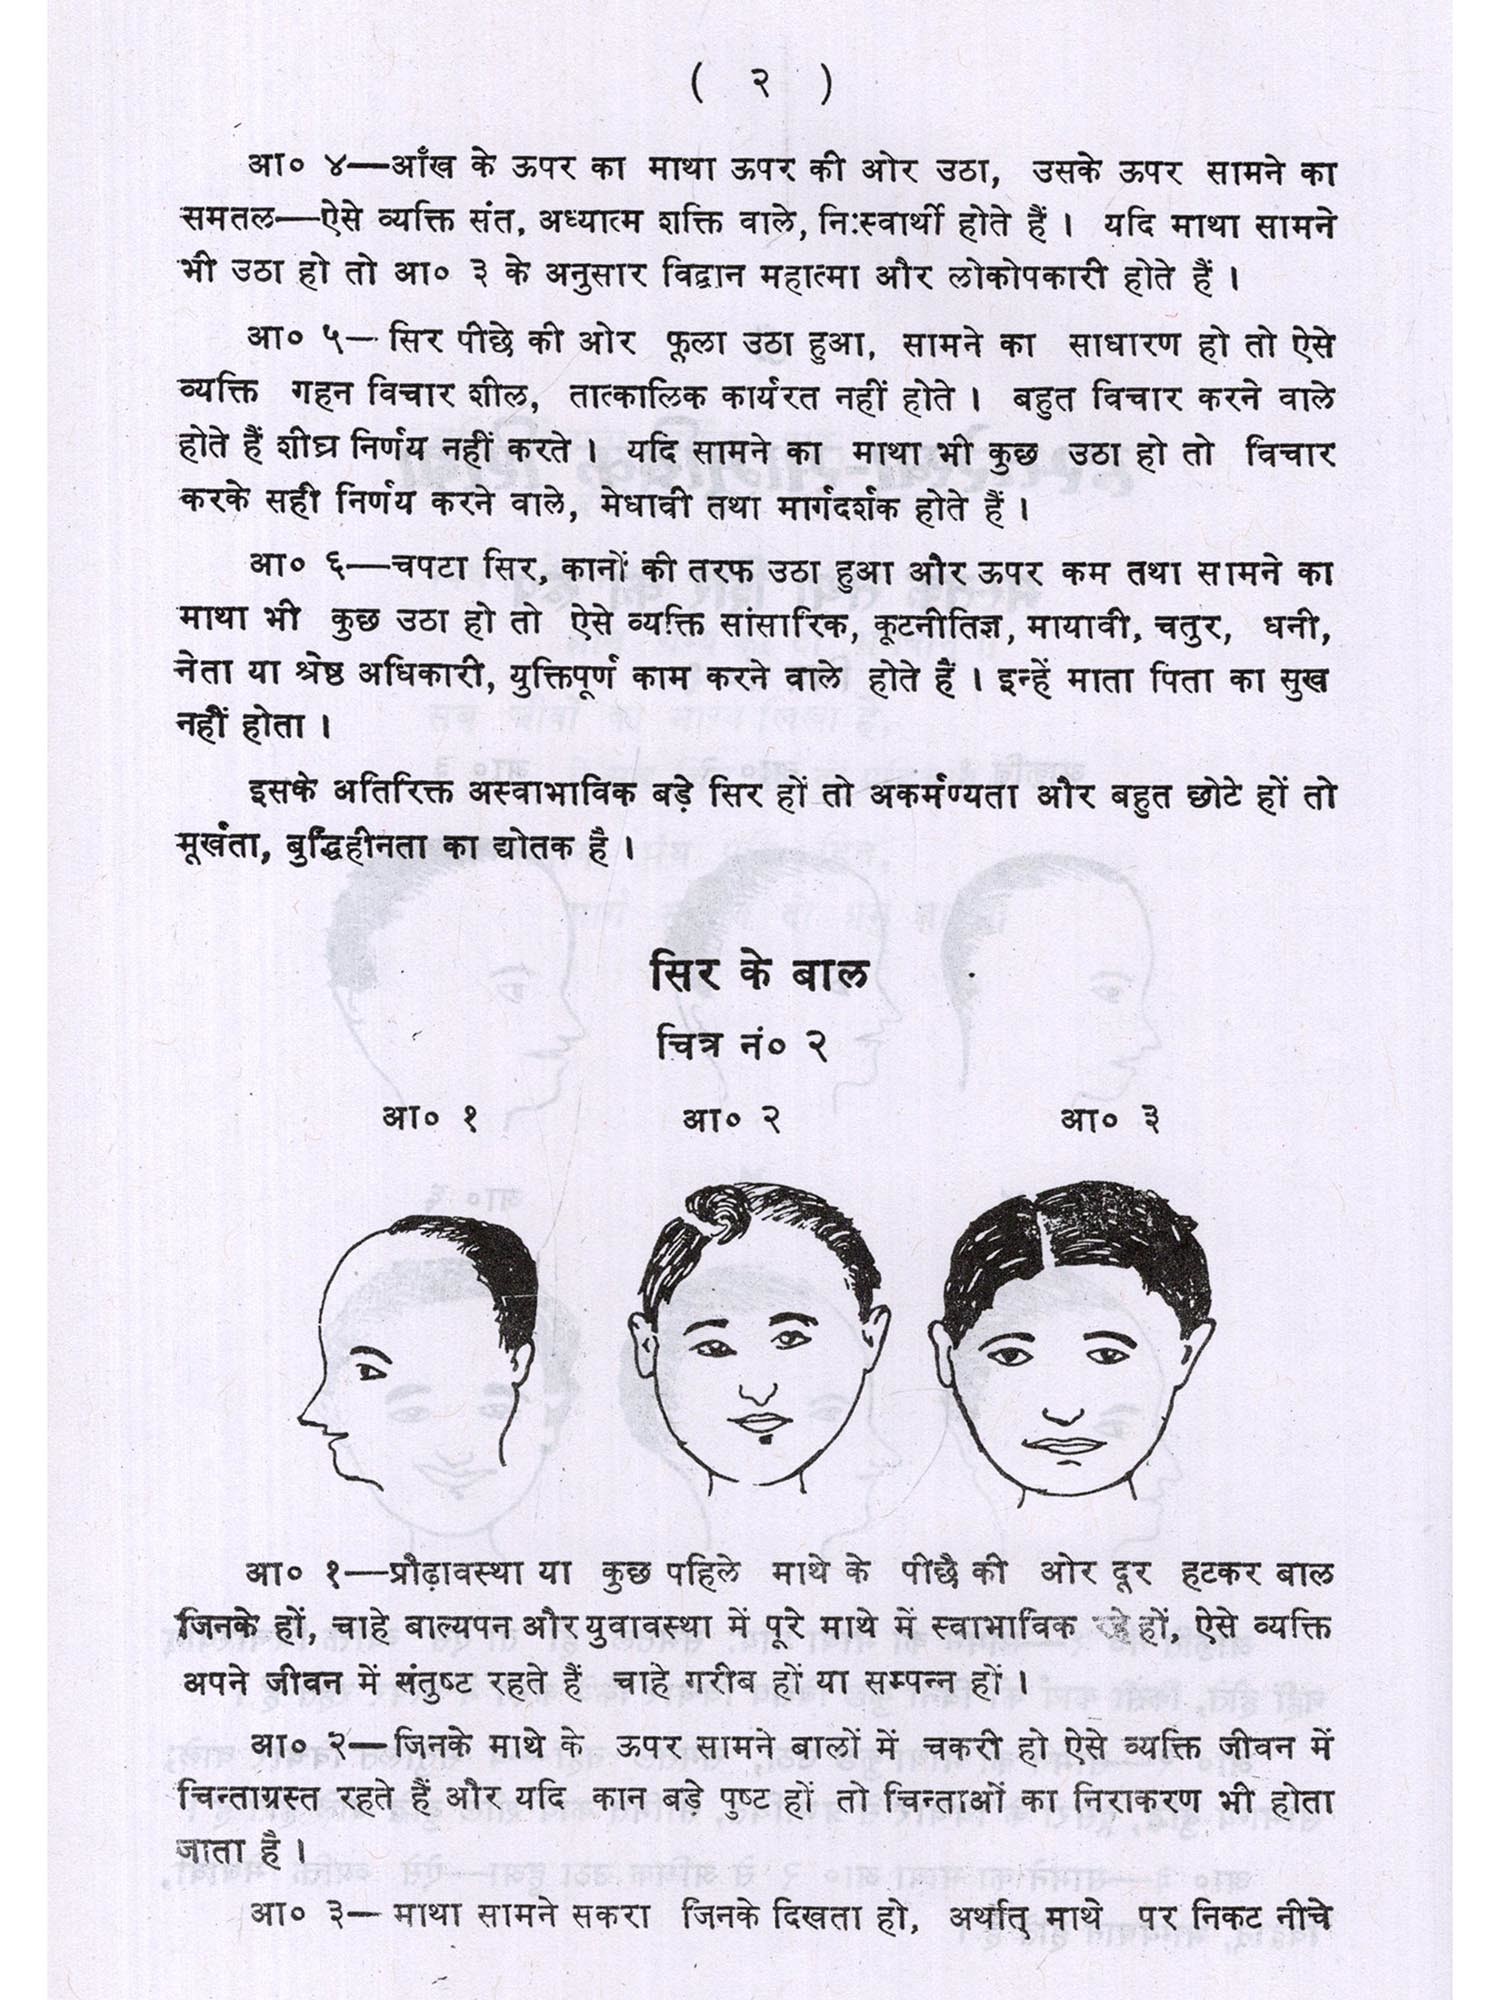 ( २ )
आ० ४—आँख के ऊपर का माथा ऊपर की ओर उठा, उसके ऊपर सामने का
समतल—ऐसे व्यक्ति संत, अध्यात्म शक्ति वाले, नि:स्वार्थी होते हैं । यदि माथा सामने
भी उठा हो तो आ० ३ के अनुसार विद्वान महात्मा और लोकोपकारी होते हैं ।
आ० ५— सिर पीछे की ओर फूला उठा हुआ, सामने का साधारण हो तो ऐसे
व्यक्ति गहन विचार शील, तात्कालिक कार्यरत नहीं होते । बहुत विचार करने वाले
होते हैं शीघ्र निर्णय नहीं करते । यदि सामने का माथा भी कुछ उठा हो तो विचार
करके सही निर्णय करने वाले, मेधावी तथा मार्गदर्शक होते हैं ।
आ० ६—चपटा सिर, कानों की तरफ उठा हुआ और ऊपर कम तथा सामने का
माथा भी कुछ उठा हो तो ऐसे व्यक्ति सांसारिक, कूटनीतिज्ञ, मायावी, चतुर, धनी,
नेता या श्रेष्ठ अधिकारी, युक्तिपूर्ण काम करने वाले होते हैं । इन्हें माता पिता का सुख
नहीं होता ।
इसके अतिरिक्त अस्वाभाविक बड़े सिर हों तो अकर्मण्यता और बहुत छोटे हों तो
मूर्खता, बुद्धिहीनता का द्योतक है ।
सिर के बाल
चित्र नं० २
आ० १ आ० २ आ० ३
आ० १—प्रौढ़ावस्था या कुछ पहिले माथे के पीछै की ओर दूर हटकर बाल
जिनके हों, चाहे बाल्यपन और युवावस्था में पूरे माथे में स्वाभाविक रहे हों, ऐसे व्यक्ति
अपने जीवन में संतुष्ट रहते हैं चाहे गरीब हों या सम्पन्न हों ।
आ० २—जिनके माथे के ऊपर सामने बालों में चकरी हो ऐसे व्यक्ति जीवन में
चिन्ताग्रस्त रहते हैं और यदि कान बड़े पुष्ट हों तो चिन्ताओं का निराकरण भी होता
जाता है ।
आ० ३— माथा सामने सकरा जिनके दिखता हो, अर्थात् माथे पर निकट नीचे